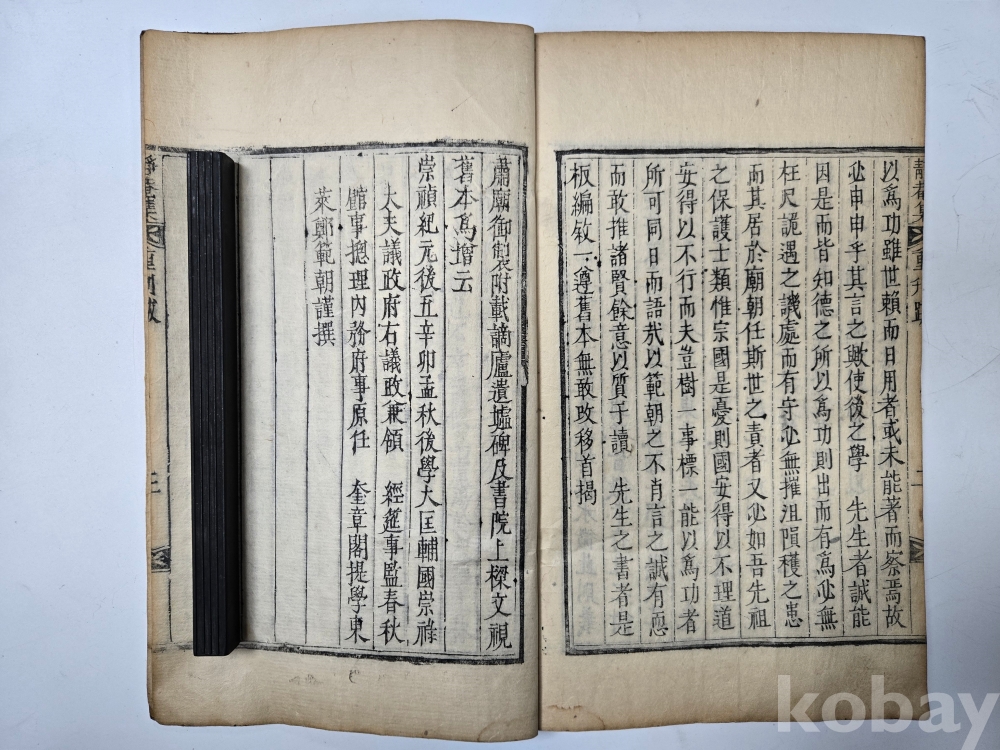 以爲功雖世賴而日用者或未能著而察焉故
必申申乎其言之歟使後之學 先生者誠能
因是而皆知德之所以爲功則出而有爲必無
枉尺詭遇之譏處而有守必無摧沮隕穫之患
而其居於廟朝任斯世之責者又必如吾先祖
之保護士類惟宗國是憂則國安得以不理道
安得以不行而夫豈樹一事標一能以爲功者
所可同日而語哉以範朝之不肖言之誠有恧
而敢推諸賢餘意以質于讀 先生之書者是
板編敘一遵舊本無敢攺移首揭
肅廟御製附載謫廬遺墟碑及書院上樑文視
舊本爲增云
崇禎紀元後五辛卯孟秋後學大匡輔國崇祿
大夫議政府右議政兼領 經筵事監春秋
館事摠理內務府事原任 奎章閣提學東
萊鄭範朝謹撰
靜菴集
重刊跋
二
kobay